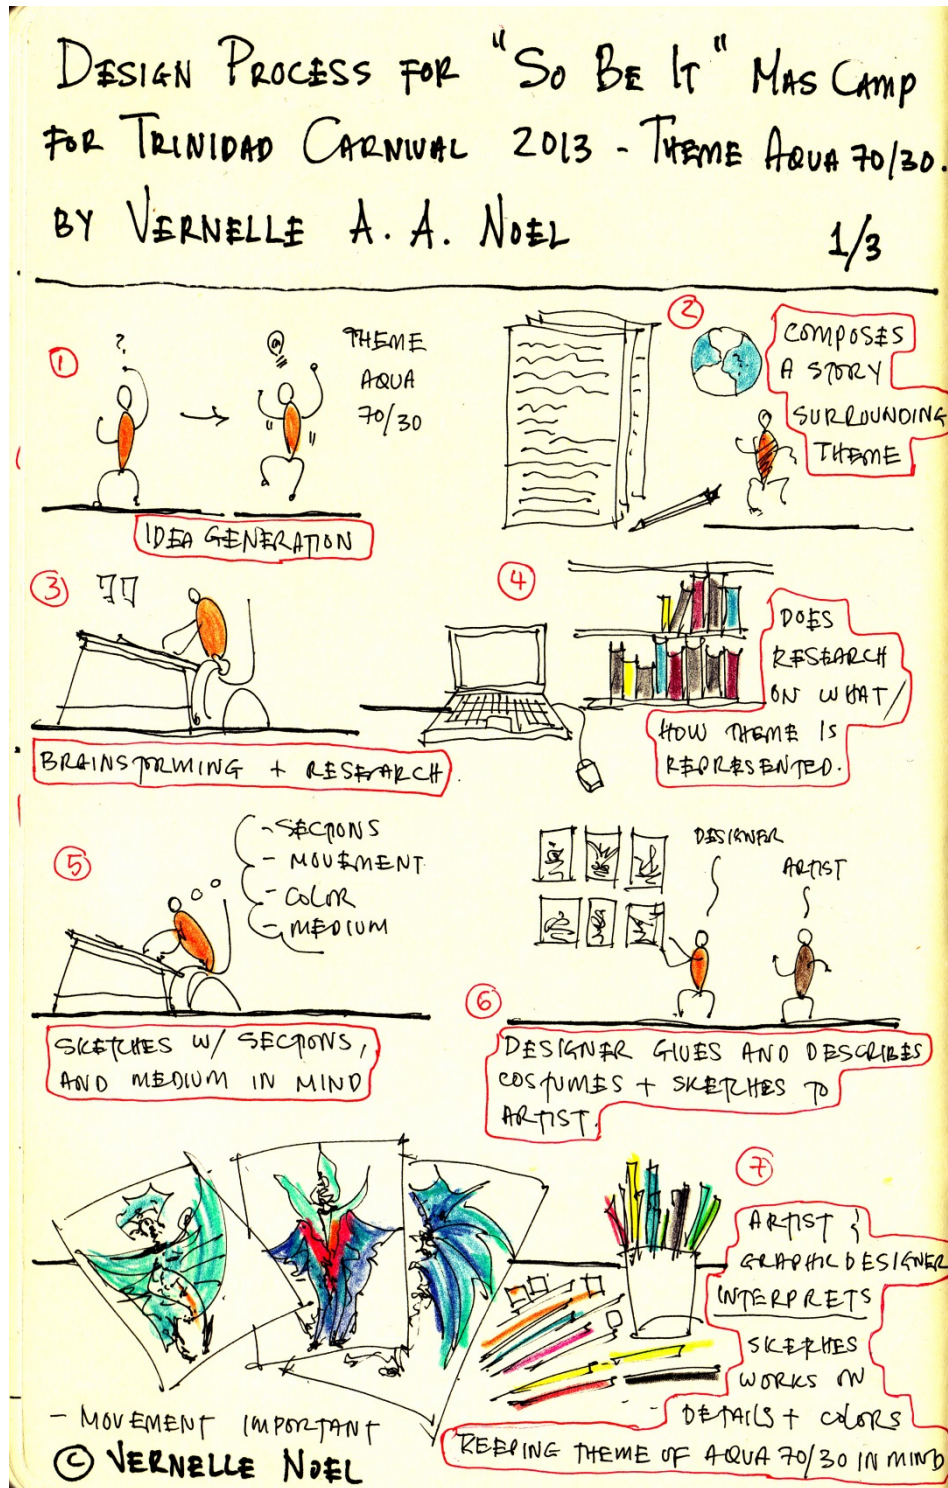 DESIGN PROCESS FOR "SO BE IT" MAS CAMP
FOR TRINIDAD CARNIVAL 2013 - THEME AQUA 70/30.
BY VERNELLE A. A. NOEL
1/3
1
?
THEME
AQUA
70/30
IDEA GENERATION
2
COMPOSES
A STORY
SURROUNDING
THEME
3
BRAINSTORMING + RESEARCH
4
DOES
RESEARCH
ON WHAT/
HOW THEME IS
REPRESENTED.
5
- SECTIONS
- MOVEMENT
- COLOR
- MEDIUM
SKETCHES W/ SECTIONS,
AND MEDIUM IN MIND
DESIGNER
ARTIST
6
DESIGNER GIVES AND DESCRIBES
COSTUMES + SKETCHES TO
ARTIST.
7
ARTIST &
GRAPHIC DESIGNER
INTERPRETS
SKETCHES
WORKS ON
DETAILS + COLORS
KEEPING THEME OF AQUA 70/30 IN MIND
- MOVEMENT IMPORTANT
© VERNELLE NOEL